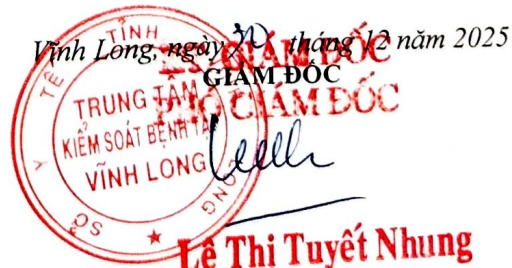 Vĩnh Long, ngày 30 tháng 12 năm 2025
KT. GIÁM ĐỐC
GIÁM ĐỐC
PHÓ GIÁM ĐỐC
SỞ Y TẾ TỈNH VĨNH LONG
TRUNG TÂM
KIỂM SOÁT BỆNH TẬT
VĨNH LONG
Lê Thị Tuyết Nhung